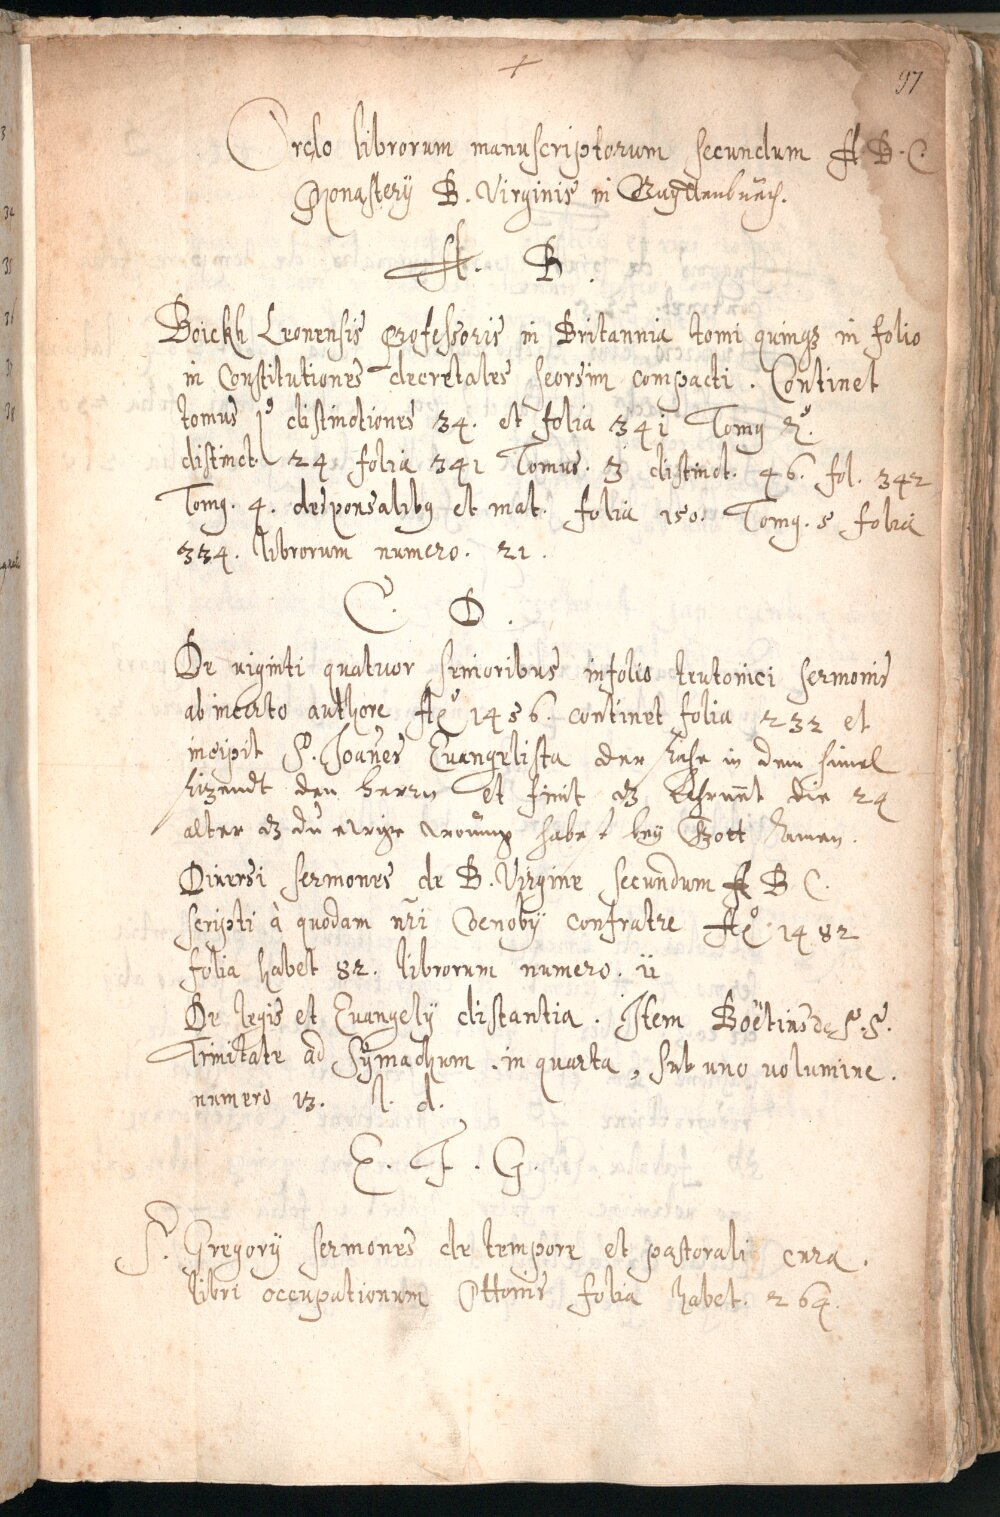 97
Ordo librorum manuscriptorum secundum A B. C.
Monasterÿ B. Virginis in
A. B.
Boickh Leonensis professoris in Britannia tomi quinqȝ in folio
in Constitutiones decretales seorsim compacti. Continet
tomus 1⁹ distinctiones 34. et folia 341 Tomꝰ 2⁹.
distinct. 24 folia 341 Tomus. 3 distinct. 46. fol. 342
Tomꝰ. 4. desponsalibꝰ et mat. folia 150. Tomꝰ. 5 folia
334. librorum numero. 21.
C. D.
De uiginti quatuor senioribus infolio teutonici sermonis
ab incerto authore Aō 1456. continet folia 232 et
incipit S. Joan̄es Euangelista der sahe in dem himel
sizendt den herrn et finit dȝ die 24
alter dȝ du ewige habest bey Gott Amen.
Diuersi sermones de B. Virgine secundum A B C.
scripti à quodam nr̄i Coenobÿ confratre Aō 1482
folia habet 82. librorum numero. 11
De legis et Euangelÿ distantia. Item Boëtius de S. S.
Trinitate ad Sÿmachum. in quarta, sub uno uolumine.
numero 13. l. d.
E. F. G.
S. Gregorÿ sermones de tempore et pastorali cura.
libri occupationum Ottonis folia habet. 264.